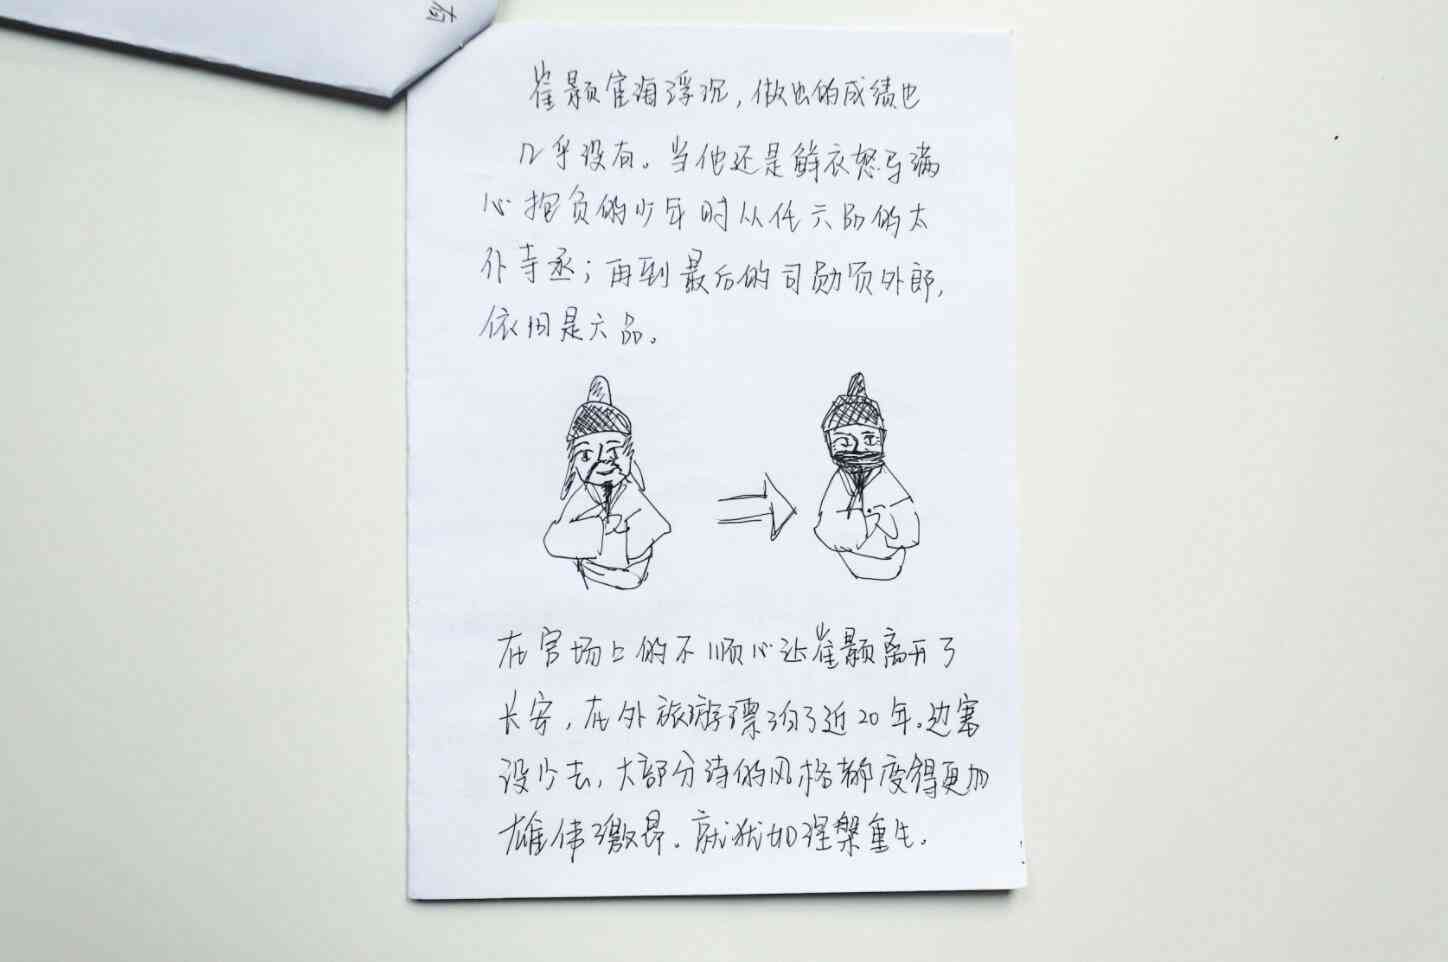 崔颢宦海浮沉，做出的成绩也
几乎没有。当他还是鲜衣怒马满
心抱负的少年时从任六品的太
仆寺丞；再到最后的司勋员外郎，
依旧是六品。
在官场上的不顺心让崔颢离开了
长安，在外旅游漂泊了近20年。边塞
没少去，大部分诗的风格都变得更加
雄伟激昂。就犹如涅槃重生。